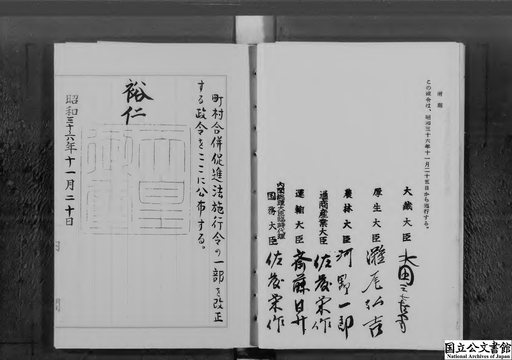 附則
この政令は、昭和三十六年十一月二十五日から施行する。
大蔵大臣 水田三喜男
厚生大臣 灘尾弘吉
農林大臣 河野一郎
通商産業大臣 佐藤栄作
運輸大臣 斎藤昇
内閣総理大臣臨時代理
国務大臣 佐藤栄作
町村合併促進法施行令の一部を改正
する政令をここに公布する。
裕仁
天皇
御璽
昭和三十六年十一月二十日
国立公文書館
National Archives of Japan